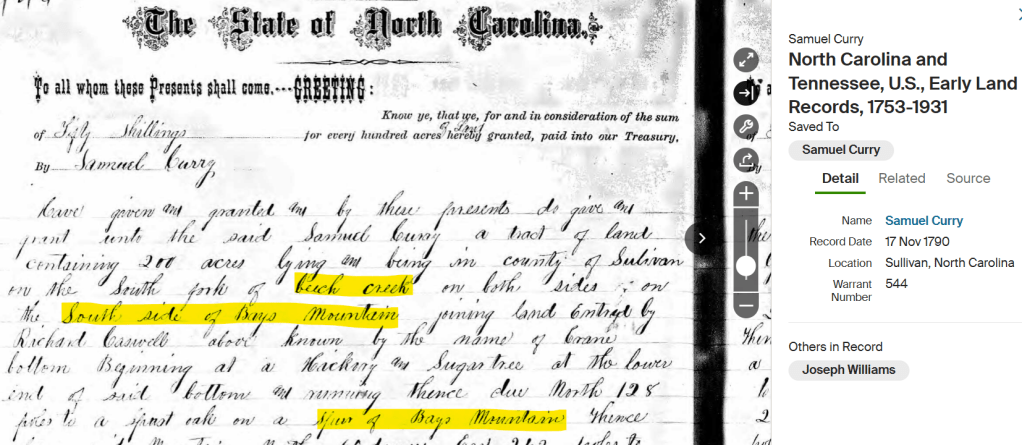 The State of North Carolina.
To all whom these Presents shall come.---GREETING:
Know ye, that we, for and in consideration of the sum
of Fifty Shillings for every hundred acres hereby granted, paid into our Treasury,
By Samuel Curry
have given and granted and by these presents do give and
grant unto the said Samuel Curry a tract of land
containing 200 acres lying and being in county of Sulivan
on the South fork of beech creek on both sides & on
the South side of Bays Mountain joining land Entred by
Richard Caswell above known by the name of Crane
bottom Beginning at a Hackberry and Sugartree at the lower
end of said bottom and running thence due North 128
poles to a spanish oak on a Spur of Bays Mountain thence
Samuel Curry
North Carolina and
Tennessee, U.S., Early Land
Records, 1753-1931
Saved To
Samuel Curry
Detail Related Source
Name Samuel Curry
Record Date 17 Nov 1790
Location Sullivan, North Carolina
Warrant Number 544
Others in Record
Joseph Williams